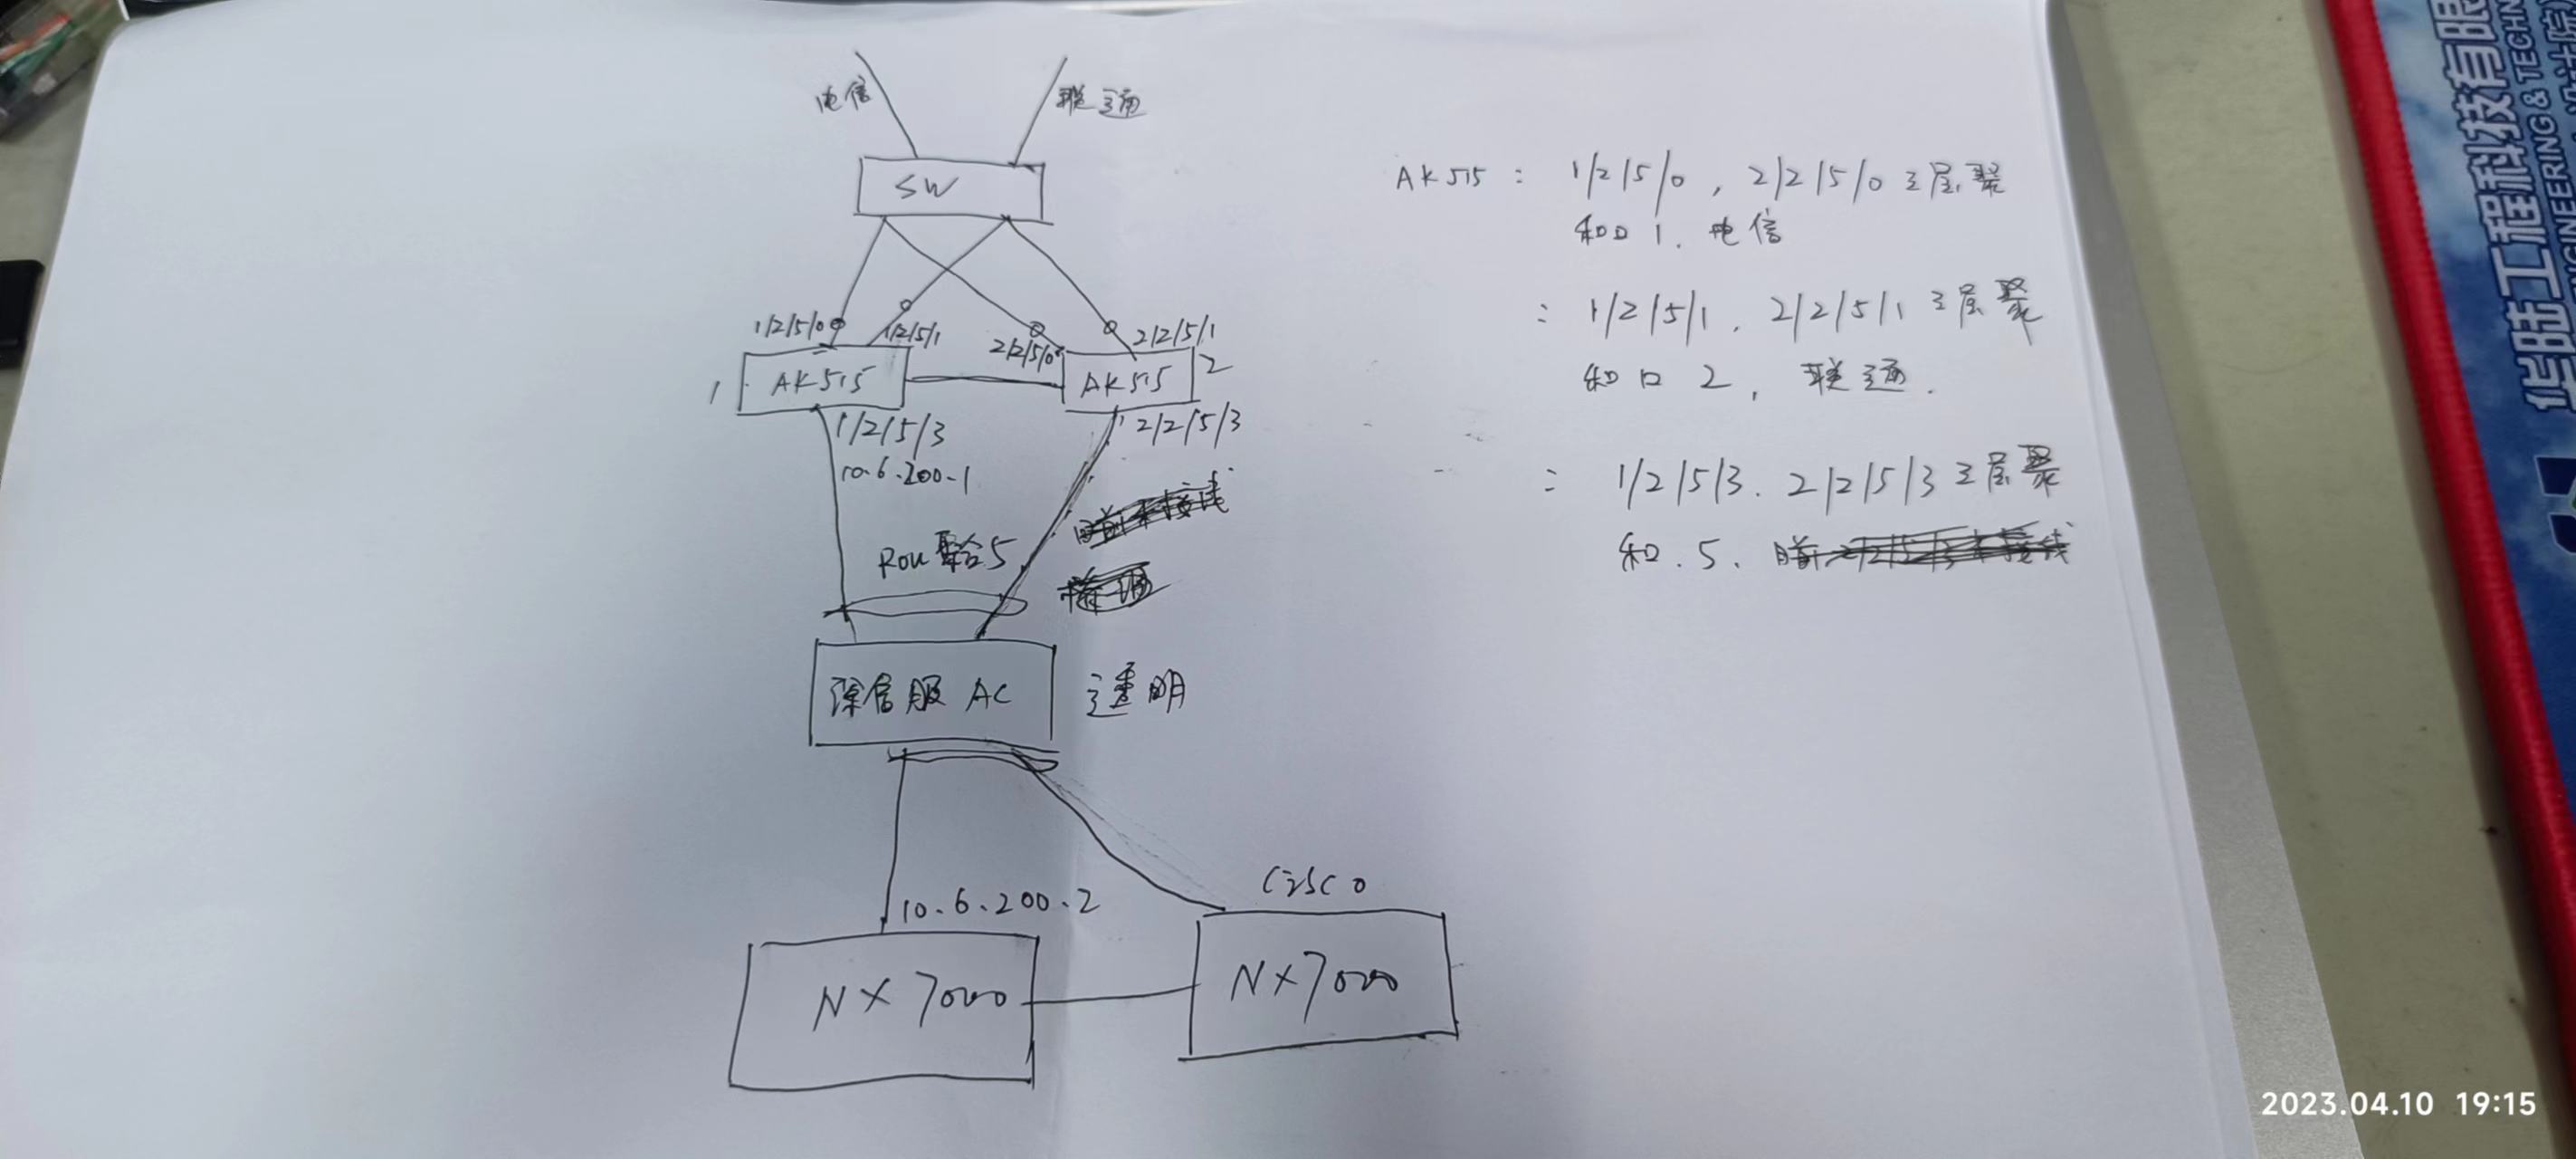 电信
联通
SW
1/2/5/0
1/2/5/1
2/2/5/0
2/2/5/1
1
AK515
AK515
2
1/2/5/3
2/2/5/3
10.6.200.1
Rou聚合5
深信服 AC
透明
10.6.200.2
CISCO
NX7000
NX7000
AK515: 1/2/5/0, 2/2/5/0 三层聚
和口1. 电信
: 1/2/5/1. 2/2/5/1 三层聚
和口2, 联通.
: 1/2/5/3. 2/2/5/3 三层聚
和.5.
华陆工程科技有限
ENGINEERING & TECHN
2023.04.10 19:15